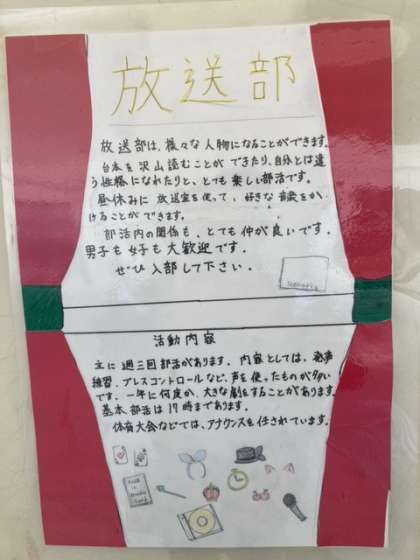 放送部
放送部は、様々な人物になることができます。
台本を沢山読むことができたり、自分とは違
う性格になれたりと、とても楽しい部活です。
昼休みに放送室を使って、好きな音楽をか
けることができます。
部活内の関係も、とても仲が良いです。
男子も女子も大歓迎です。
ぜひ入部して下さい。
活動内容
主に週三回部活があります。内容としては、発声
練習、ブレスコントロールなど、声を使ったものが多い
です。一年に何度か、大きな劇をすることがあります。
基本部活は17時まであります。
体育大会などでは、アナウンスを任されています。